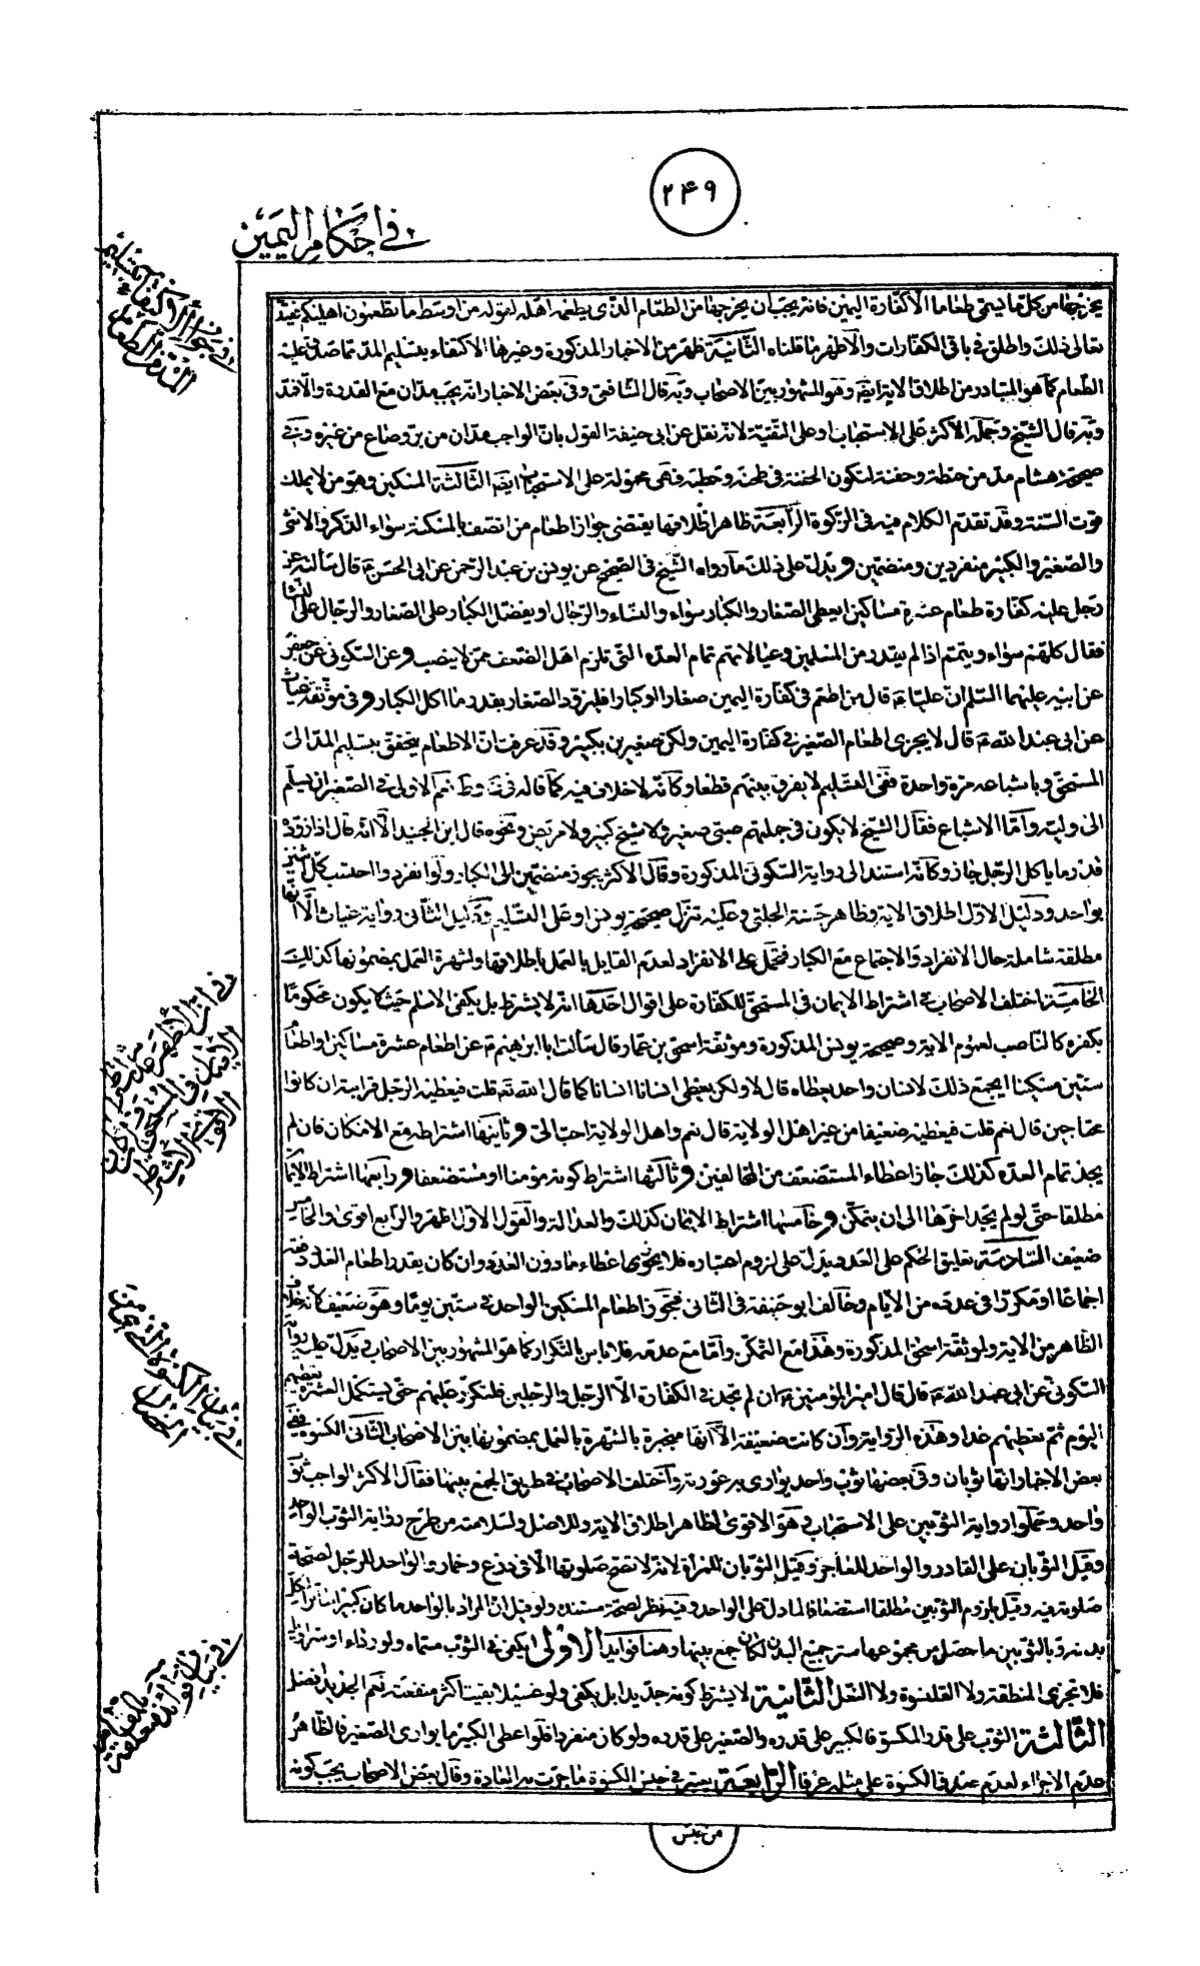 ۲۴۹
في احكام اليمين
في جواز الاكتفاء بتسليم
المد من الطعام
يخرجها من كل ما يسمى طعاما الا كفارة اليمين فانه يجب ان يخرجها من الطعام الذى يطعمه اهله لقوله من اوسط ما تطعمون اهليكم
تعالى ذلك واطلق في باقى الكفارات والاظهر ما قلناه الثانية ظهر من الاخبار المذكورة وغيرها الاكتفاء بتسليم المد تماصدق عليه
الطعام كما هو المتبادر من اطلاق الاية ايضا وهو المشهور بين الاصحاب وبه قال الشافعي وفي بعض الاخبار انه يجب مدان مع القدرة والا فمد
وبه قال الشيخ وحمله الاكثر على الاستحباب او على التقية لانه نقل عن ابى حنيفة القول بان الواجب مدان من بر وصاع من غيره وفي
صحيحة هشام مد من حنطة وحفنة لتكون الحفنة في طحنه وحطبه فهى محمولة على الاستحباب ايضا الثالثة المسكين وهو من لا يملك
قوت السنة وقد تقدم الكلام فيه في الزكوة الرابعة ظاهر اطلاقها يقتضى جواز اطعام من اتصف بالمسكنة سواء الذكر والانثى
والصغير والكبير منفردين ومنضمين ويدل على ذلك ما رواه الشيخ في الصحيح عن يونس بن عبد الرحمن عن ابى الحسن ع قال سالته عن
رجل عليه كفارة طعام عشرة مساكين ايعطى الصغار والكبار سواء والنساء والرجال او يفضل الكبار على الصغار والرجال على النساء
فقال كلهم سواء ويتمم اذا لم يقدر من المسلمين وعيالاتهم تمام العدة التى تلزم اهل الضعف ممن لا ينصب وعن السكونى عن جعفر
عن ابيه عليهما السلام ان عليا ع قال من اطعم في كفارة اليمين صغارا وكبارا فليزود الصغار بقدر ما اكل الكبار وفي موثقة غياث
عن ابى عبد الله ع قال لا يجزى اطعام الصغير في كفارة اليمين ولكن صغيرين بكبير وقد عرفت ان الاطعام يتحقق بتسليم المد الى
المستحق وباشباعه مرة واحدة ففى التسليم لا يفرق بينهم قطعا وكانه لا خلاف فيه كما قاله في ف وط نعم الاولى في الصغير ان يسلم
الى وليه واما الاشباع فقال الشيخ لا يكون في جملتهم صبى صغير ولا شيخ كبير ولا مريض ونحوه قال ابن الجنيد الا انه قال اذا زود
قدر ما ياكل الرجل جاز وكانه استند الى رواية السكونى المذكورة وقال الاكثر يجوز منضمين الى الكبار ولو انفردوا احتسب كل اثنين
بواحد ودليل الاول اطلاق الاية وظاهر حسنة الحلبي وعليه تنزل صحيحة يونس او على التسليم ودليل الثانى رواية غياث الا انها
مطلقة شاملة حال الانفراد والاجتماع مع الكبار فتحمل على الانفراد لعدم القايل بالعمل باطلاقها ولشهرة العمل بمضمونها كذلك
الخامسة اختلف الاصحاب في اشتراط الايمان في المستحق للكفارة على اقوال احدها انه لا يشترط بل يكفى الاسلام حيث لا يكون محكوما
بكفره كالناصب لعموم الاية وصحيحة يونس المذكورة وموثقة اسحق بن عمار قال سالت ابا ابراهيم ع عن اطعام عشرة مساكين واطعام
ستين مسكينا ايجمع ذلك لانسان واحد يعطاه قال لا ولكن يعطى انسانا انسانا كما قال الله تع قلت فيعطيه الرجل قرابته ان كانوا
محتاجين قال نعم قلت فيعطيه ضعيفا من غير اهل الولاية قال نعم واهل الولاية احب الى وثانيها اشتراطه مع الامكان فان لم
يجد تمام العدة كذلك جاز اعطاء المستضعف من المخالفين وثالثها اشتراط كونه مومنا او مستضعفا ورابعها اشتراط الايمان
مطلقا حتى لو لم يجد اخرها الى ان يتمكن وخامسها اشتراط الايمان كذلك والعدالة والقول الاول اظهر والرابع اقوى والخامس
ضعيف السادسة تعليق الحكم على العدد يدل على لزوم اعتباره فلا يجزى اعطاء ما دون العدد وان كان بقدر اطعام العدد دفعة
اجماعا او مكررا في عدة من الايام وخالف ابو حنيفة في الثانى فجوز اطعام المسكين الواحد في ستين يوما وهو ضعيف لانه خلاف
الظاهر من الاية ولموثقة اسحق المذكورة وهذا مع التمكن واما مع عدمه فلا باس بالتكرار كما هو المشهور بين الاصحاب ويدل عليه رواية
السكونى عن ابى عبد الله ع قال قال امير المؤمنين ع ان لم يجد في الكفارة الا الرجل والرجلين فليكرر عليهم حتى يستكمل العشرة يعطيهم
اليوم ثم يعطيهم غدا وهذه الرواية وان كانت ضعيفة الا انها منجبرة بالشهرة بالعمل بمضمونها بين الاصحاب الثانى الكسوة ففى
بعض الاخبار انها ثوبان وفي بعضها ثوب واحد يوارى به عورته واختلف الاصحاب في طريق الجمع بينها فقال الاكثر الواجب ثوب
واحد وحملوا رواية الثوبين على الاستحباب وهو الاقوى لظاهر اطلاق الاية وللاصل ولسلامته من طرح رواية الثوب الواحد
وقيل الثوبان على القادر والواحد للعاجز وقيل الثوبان للمراة لانه لا تصح صلوتها الا في درع وخمار والواحد للرجل لصحة
صلوته فيه وقيل بلزوم الثوبين مطلقا استضعافا لما دل على الواحد وفيه نظر لصحة مستنده ولو قيل ان المراد بالواحد ما كان كبيرا ساترا لكل
بدنه وبالثوبين ما حصل من مجموعهما ستر جميع البدن لكان جمع بينها وهنا فوايد الاولى ايكفى في الثوب مسماه ولو رداء او سراويل
فلا تجزى المنطقة ولا القلنسوة ولا النعل الثانية لا يشترط كونه جديدا بل يكفى ولو غسيلا بقيت اكثر منفعته نعم الجديد افضل
الثالثة الثوب على قدر المكسو فالكبير على قدره والصغير على قدره ولو كان منفردا فلو اعطى الكبير ما يوارى الصغير فالظاهر
عدم الاجزاء لعدم عند في الكسوة على مثله عرفا الرابعة يعتبر في جنس الكسوة ما جرت به العادة وقال بعض الاصحاب يجب كونه
في ان الاظهر عدم اشتراط
الايمان في المستحق
في بيان الكسوة التى هي من
الخصال
في بيان فوايد متعلقة
من جنس